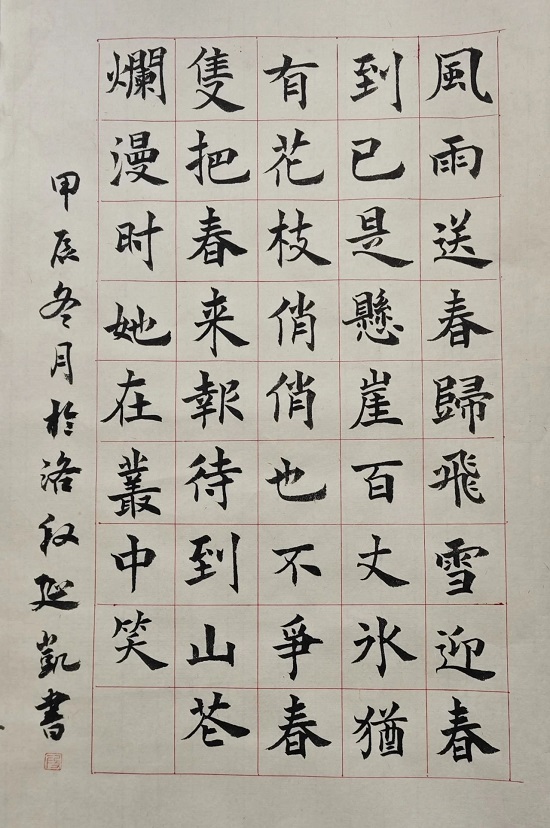 風雨送春歸飛雪迎春
到已是懸崖百丈氷猶
有花枝俏俏也不爭春
隻把春来報待到山芲
爛漫时她在叢中笑
甲辰冬月於洛延凱書